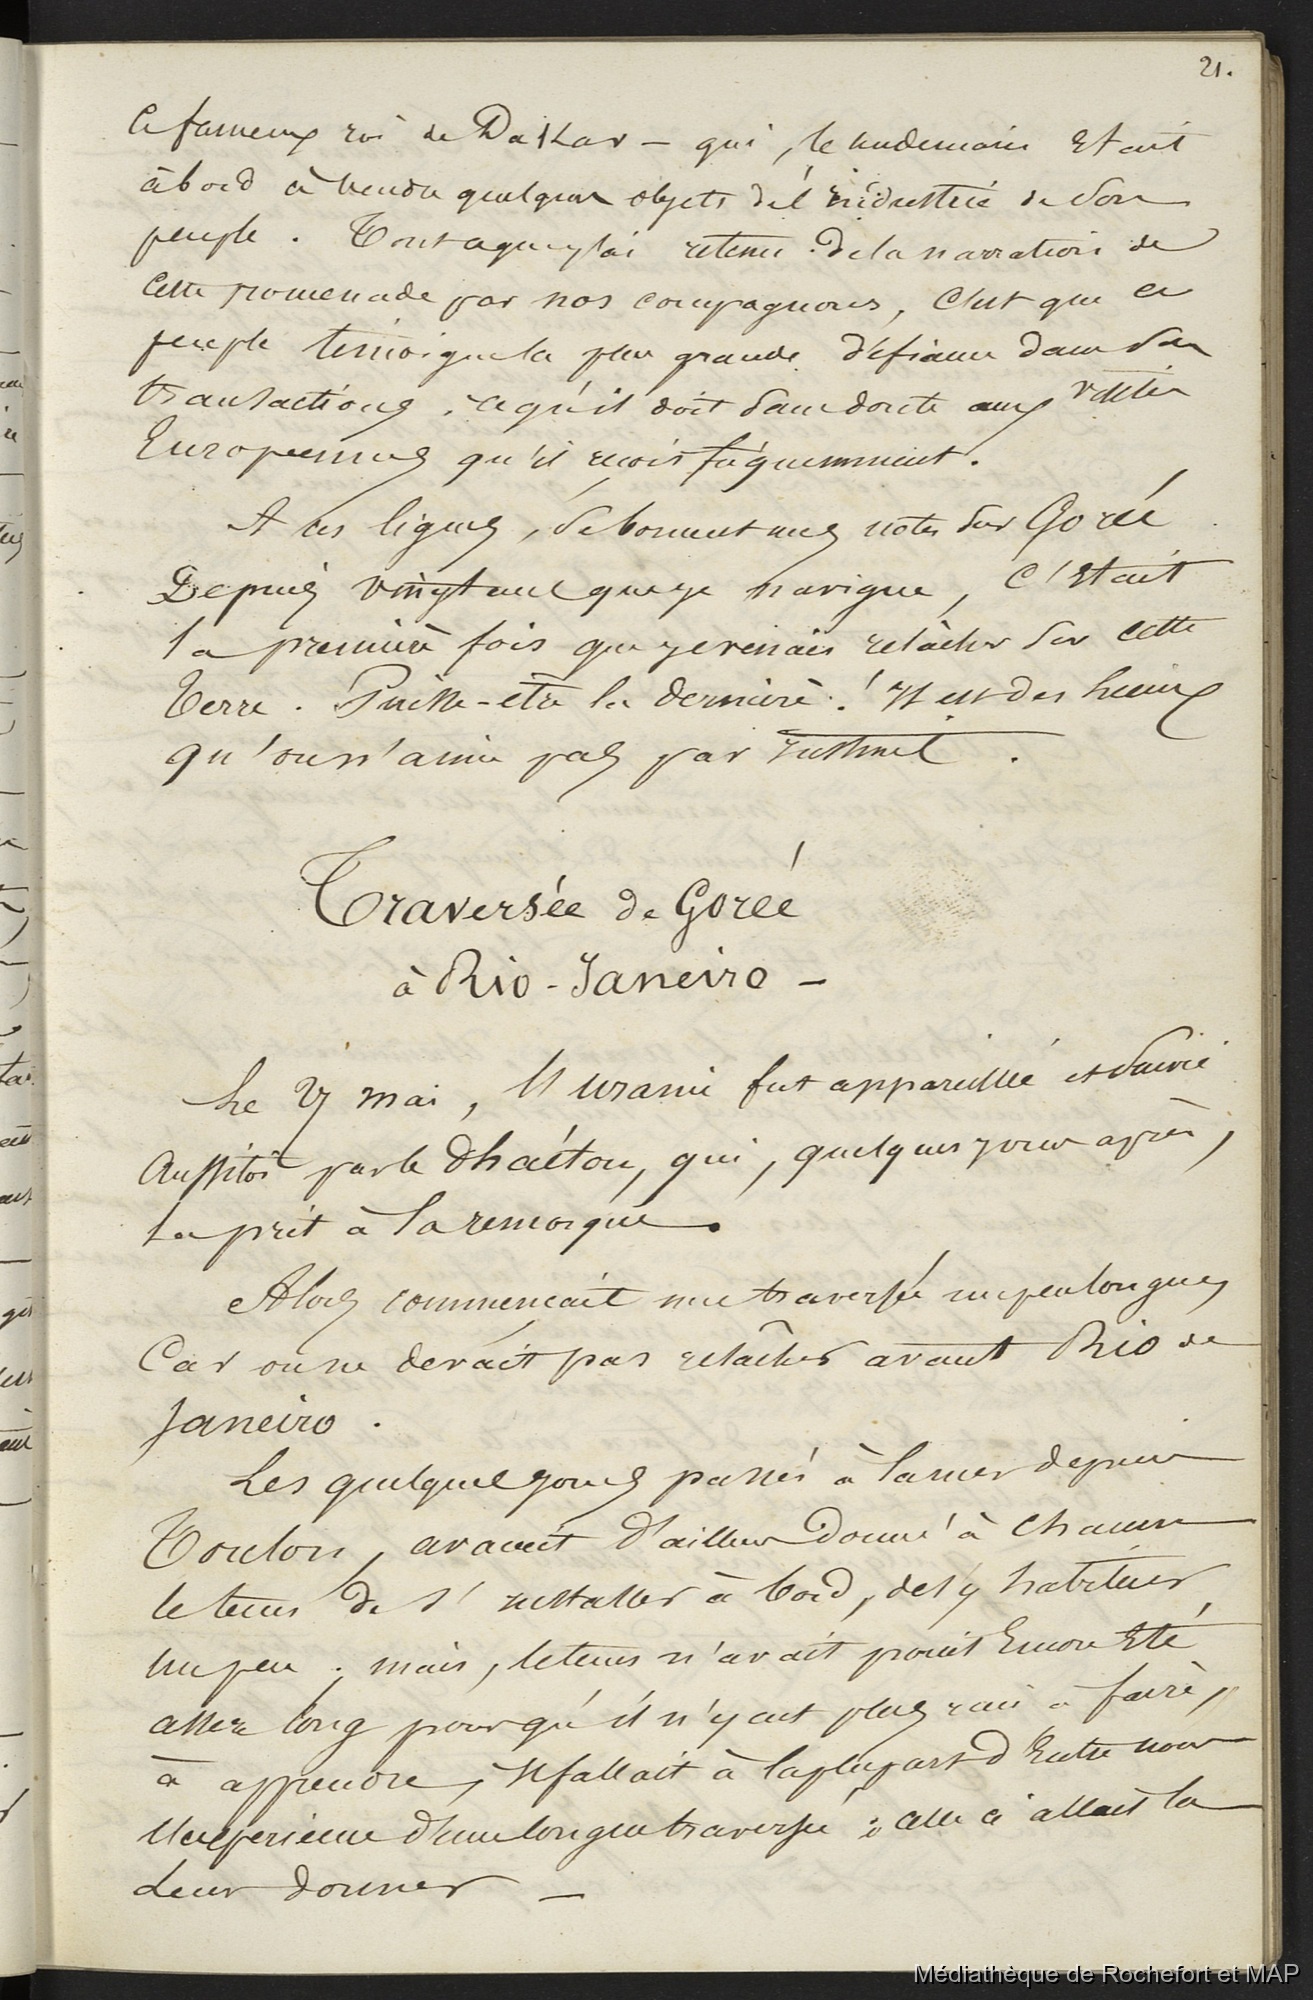 21.
Ce fameux roi de Dakar – qui, le lendemain était
à bord à vendre quelques objets de l'industrie de son
peuple. Tout ce que j'ai retenu de la narration de
cette promenade par nos compagnons, c'est que ce
peuple témoigne la plus grande défiance dans ses
transactions, ce qu'il doit sans doute aux visites
Européennes qu'il reçoit fréquemment.
A ces lignes, se bornent mes notes sur Gorée
Depuis vingt ans que je navigue, c'était
la première fois que je venais relâcher sur cette
terre. Puisse-être la dernière! Il est des lieux
qu'on n'aime pas par instinct.
Traversée de Gorée
à Rio-Janeiro –
Le 27 mai, l'Uranie fut appareillée et suivie
Aussitôt par le Phaéton, qui, quelques jours après,
la prit à la remorque.
Alors commençait une traversée un peu longue,
Car on ne devait pas relâcher avant Rio de
Janeiro.
Les quelques jours passés à la mer depuis
Toulon, avaient d'ailleurs donné à chacun
le tems de s'installer à bord, de s'y habituer
un peu; mais, le tems n'avait point encore été
assez long pour qu'il n'y eut plus rien à faire,
à apprendre, il fallait à la plupart d'entre nous
l'expérience d'une longue traversée; celle ci allait la
leur donner –
Médiathèque de Rochefort et MAP